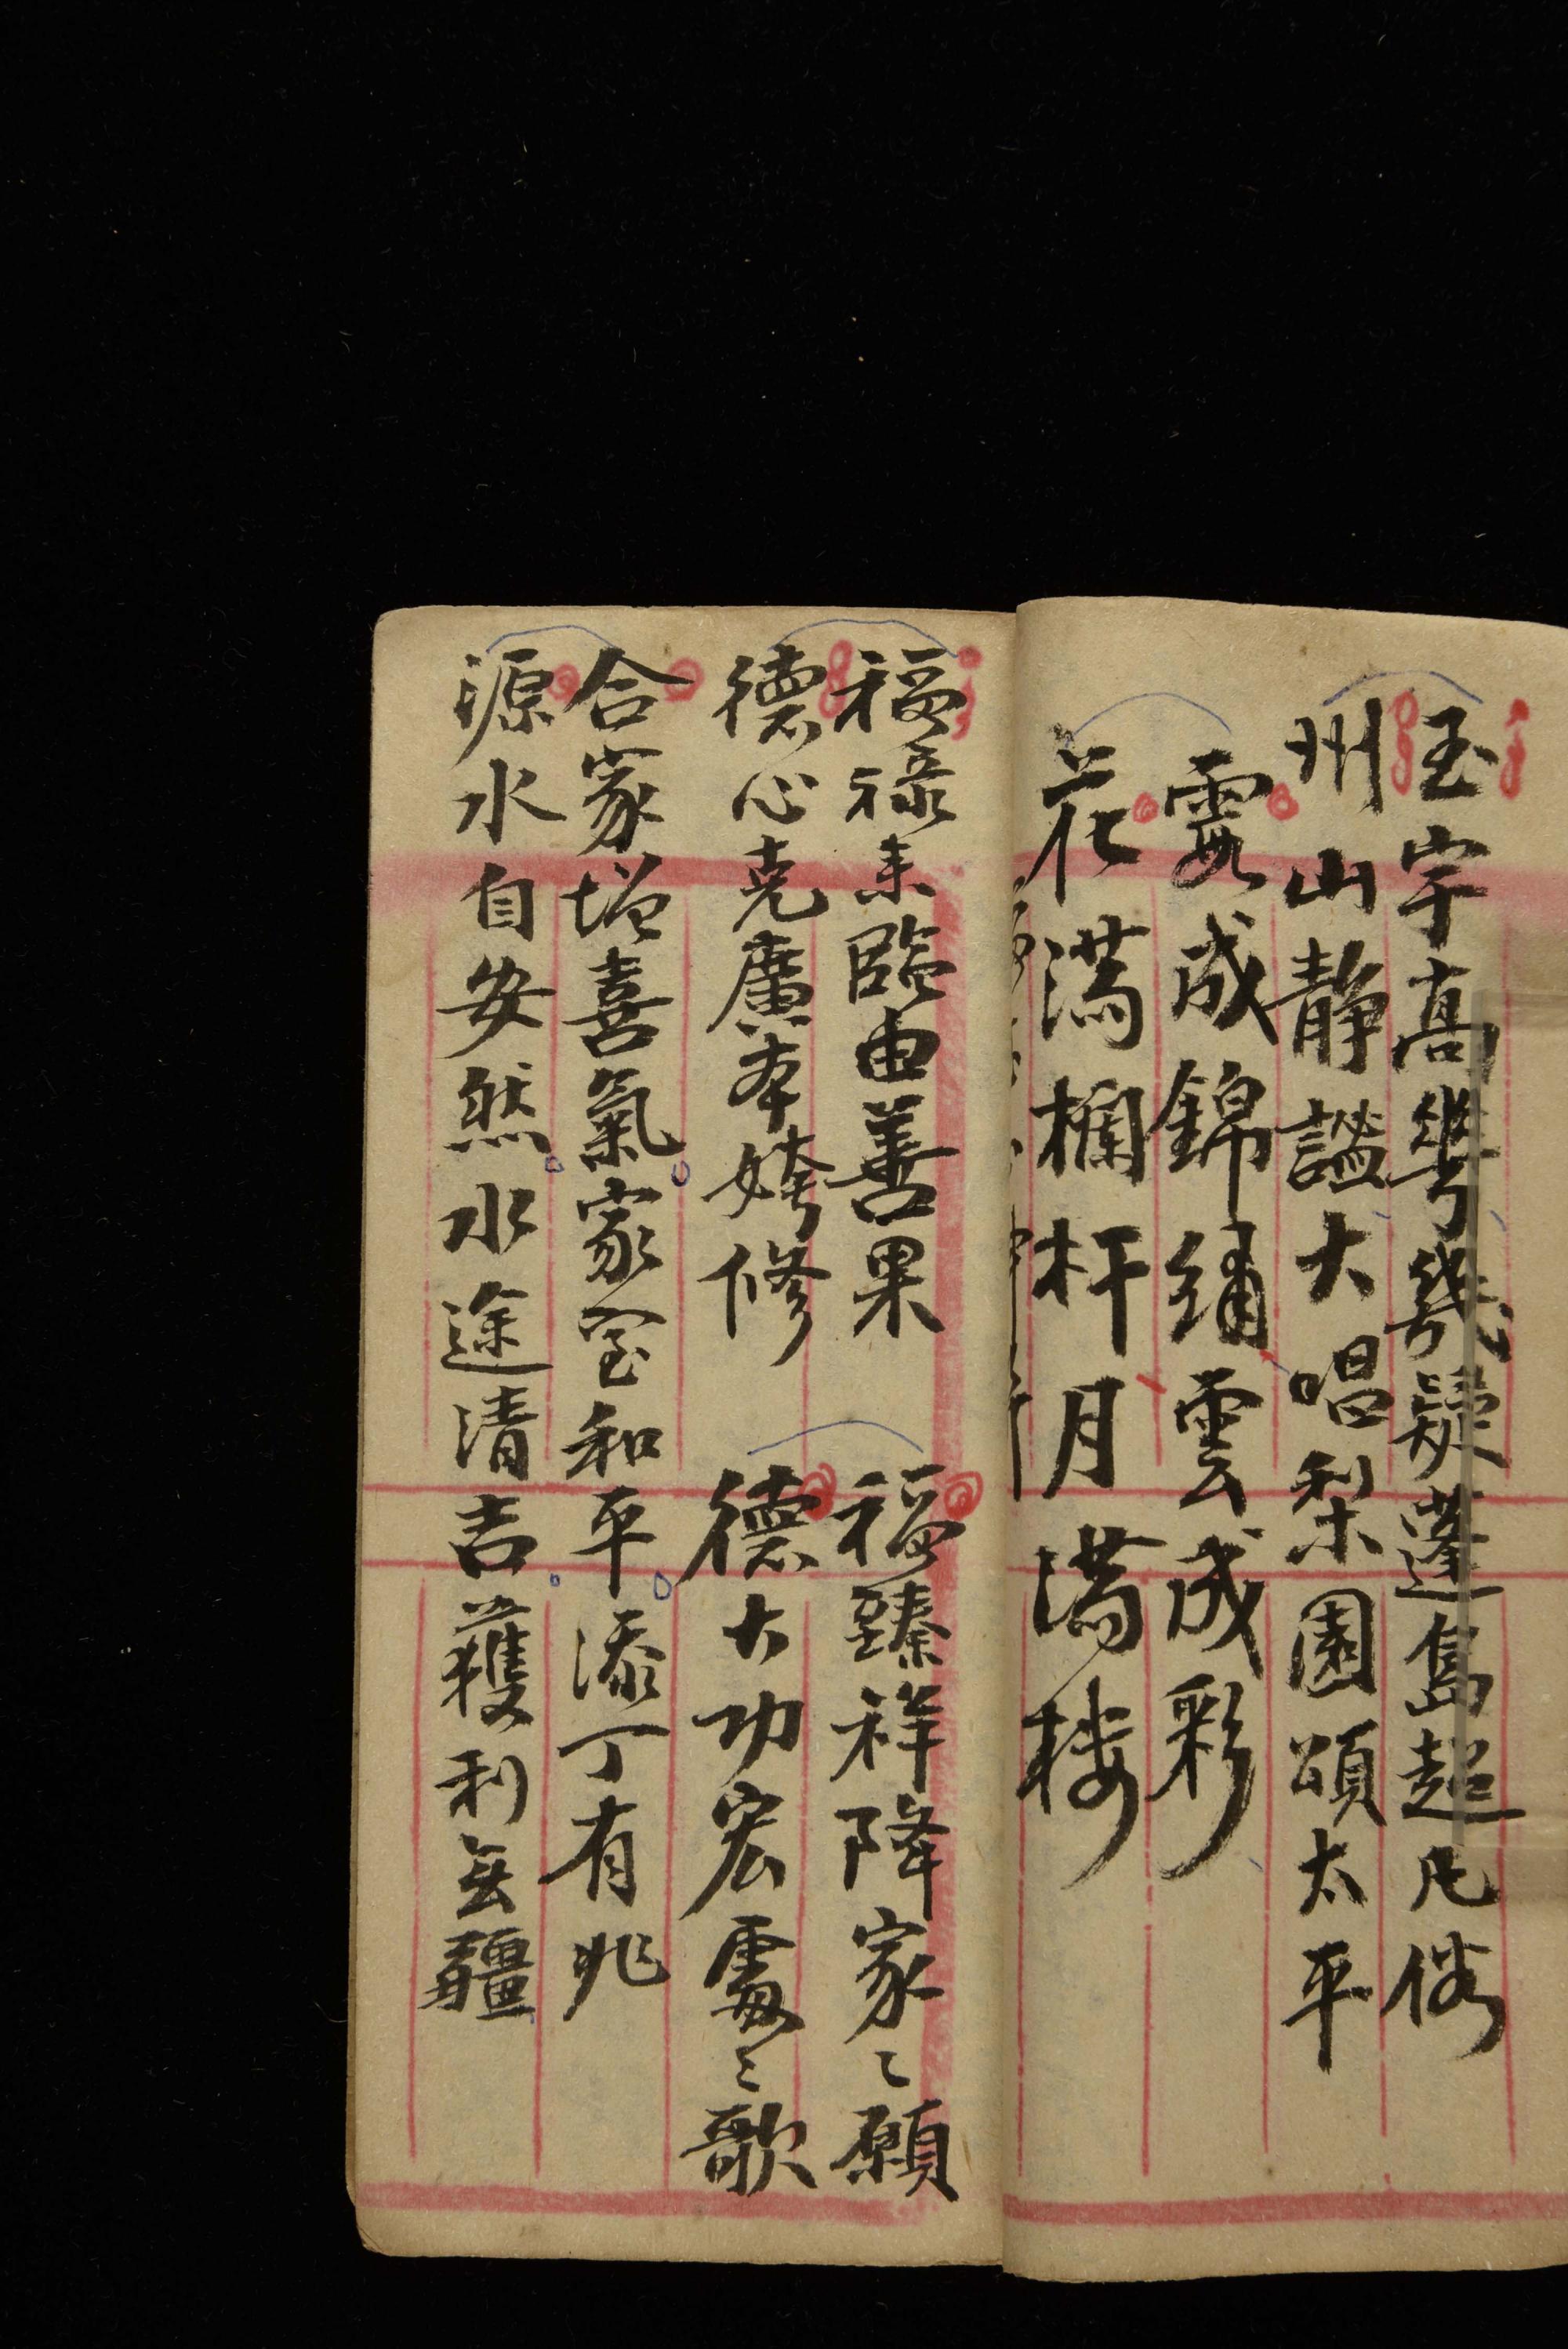 玉宇髙華幾疑蓬島超凡俗
州山静謐大唱梨園頌太平
霞成錦綉雲成彩
花滿欄杆月滿楼
福禄来臨由善果
德心克廣本姱修
福臻祥降家〻願
德大功宏處〻歌
合家增喜氣家室和平添丁有兆
源水自安然水途清吉獲利無疆